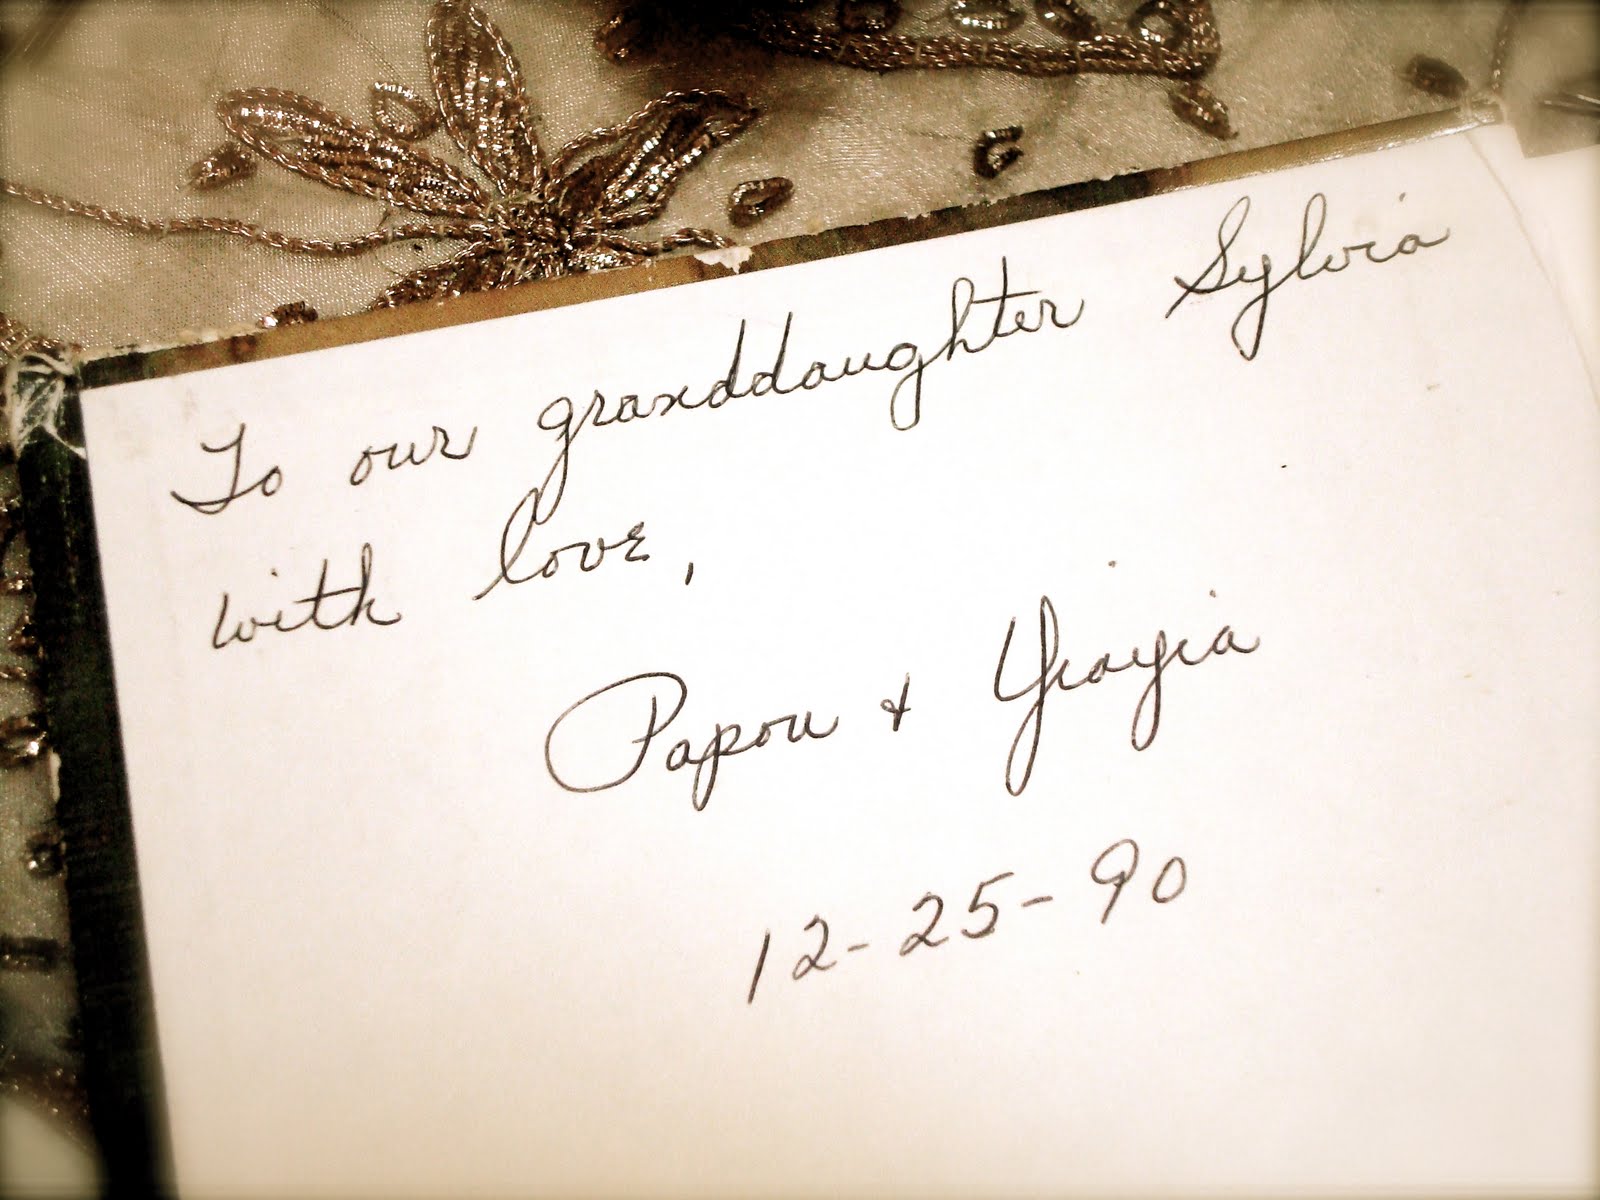 To our granddaughter Sylvia
with love,
Papou & Yiayia
12-25-90